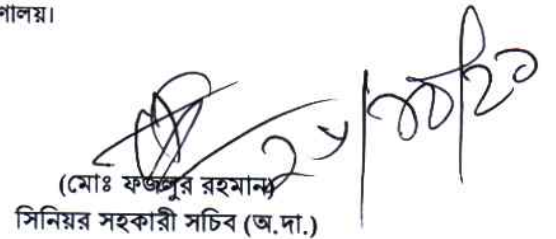 ণালয়।
(মোঃ ফজলুর রহমান)
সিনিয়র সহকারী সচিব (অ.দা.)